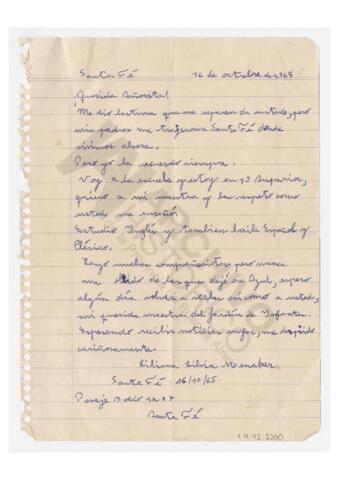 Santa Fé 16 de octubre de 1965
¡Querida Señorita!
Me dio lastima que me separen de usted, pero
mis padres me trajeron a Santa Fé donde
vivimos ahora.
Pero yo la recuerdo siempre.
Voy a la escuela y estoy en 1º Superior,
quiero a mi maestra y la respeto como
usted me enseñó.
Estudio Inglés y tambien baile Español y
Clásico.
Tengo muchas compañeritas pero nunca
me olvido de las que dejé en Azul, espero
algún día volver a verlas así como a usted,
mi querida maestra del Jardín de Infantes.
Esperando recibir noticias suyas, me despido
cariñosamente.
Liliana Silvia Menaker
Santa Fé - 16/10/65
Pasaje
Santa Fé
ARCHIVO
HISTÓRICO